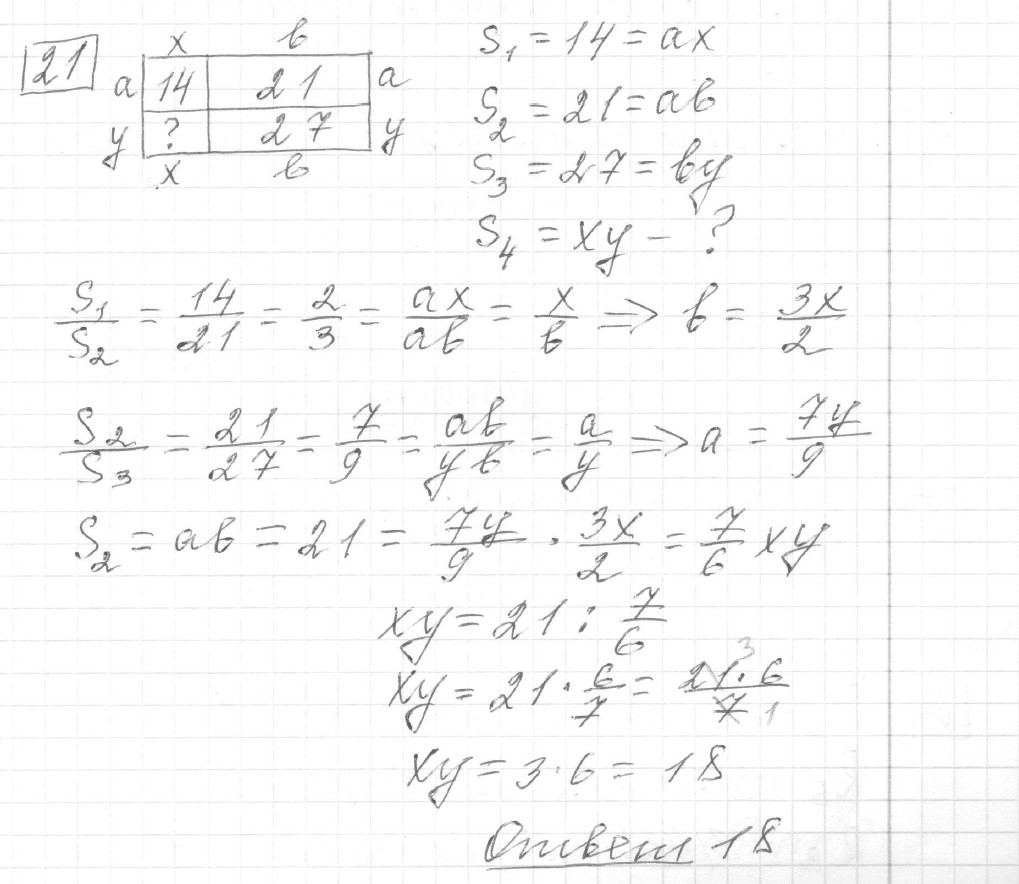 21
x в
a 14 21 a
y ? 27 y
x в
S₁ = 14 = ax
S₂ = 21 = aв
S₃ = 27 = вy
S₄ = xy - ?
S₁/S₂ = 14/21 = 2/3 = ax/aв = x/в ⇒ в = 3x/2
S₂/S₃ = 21/27 = 7/9 = aв/yв = a/y ⇒ a = 7y/9
S₂ = aв = 21 = 7y/9 · 3x/2 = 7/6 xy
xy = 21 : 7/6
xy = 21 · 6/7 = 21·6/7 3 1
xy = 3·6 = 18
Ответ 18